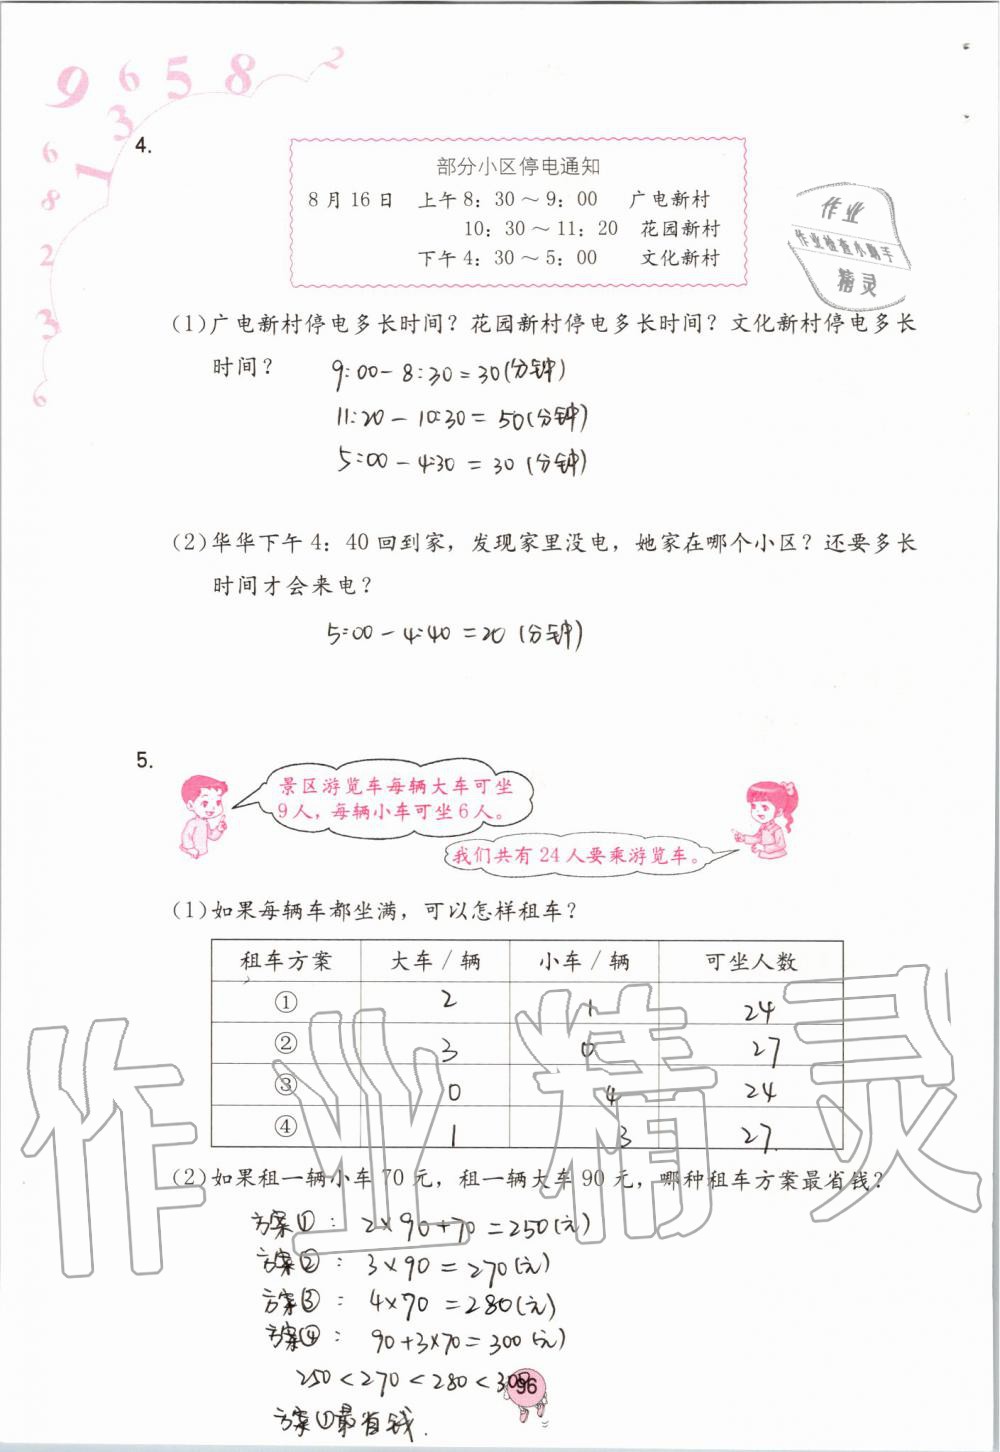 9 6 5 8 2
3
1
6
8
2
3
6
4.
部分小区停电通知
8月16日 上午8：30～9：00 广电新村
10：30～11：20 花园新村
下午4：30～5：00 文化新村
作业
作业检查小助手
精灵
(1)广电新村停电多长时间？花园新村停电多长时间？文化新村停电多长
时间？
9:00-8:30=30(分钟)
11:20-10:30=50(分钟)
5:00-4:30=30(分钟)
(2)华华下午4：40回到家，发现家里没电，她家在哪个小区？还要多长
时间才会来电？
5:00-4:40=20(分钟)
5.
景区游览车每辆大车可坐
9人，每辆小车可坐6人。
我们共有24人要乘游览车。
(1)如果每辆车都坐满，可以怎样租车？
租车方案 大车/辆 小车/辆 可坐人数
① 2 1 24
② 3 0 27
③ 0 4 24
④ 1 3 27
作业精灵
(2)如果租一辆小车70元，租一辆大车90元，哪种租车方案最省钱？
方案①：2×90+70=250(元)
方案②：3×90=270(元)
方案③：4×70=280(元)
方案④：90+3×70=300(元)
250<270<280<300
方案①最省钱.
96